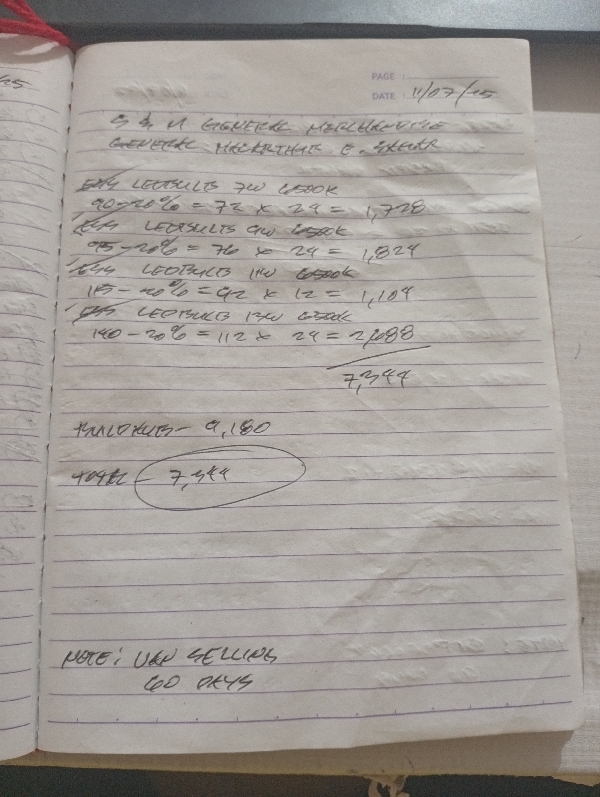 PAGE :
DATE : 11/07/25
S & N GENERAL MERCHANDISE
GENERAL MACARTHUR E. SAMAR
LEDBULB 7W 6500K
90-20% = 72 x 24 = 1,728
LEDBULB 9W 6500K
95-20% = 76 x 24 = 1,824
LEDBULB 11W 6500K
115-20% = 92 x 12 = 1,104
LEDBULB 13W 6500K
140-20% = 112 x 24 = 2,688
7,344
- 9,180
TOTAL - 7,344
NOTE: VAN SELLING
60 DAYS